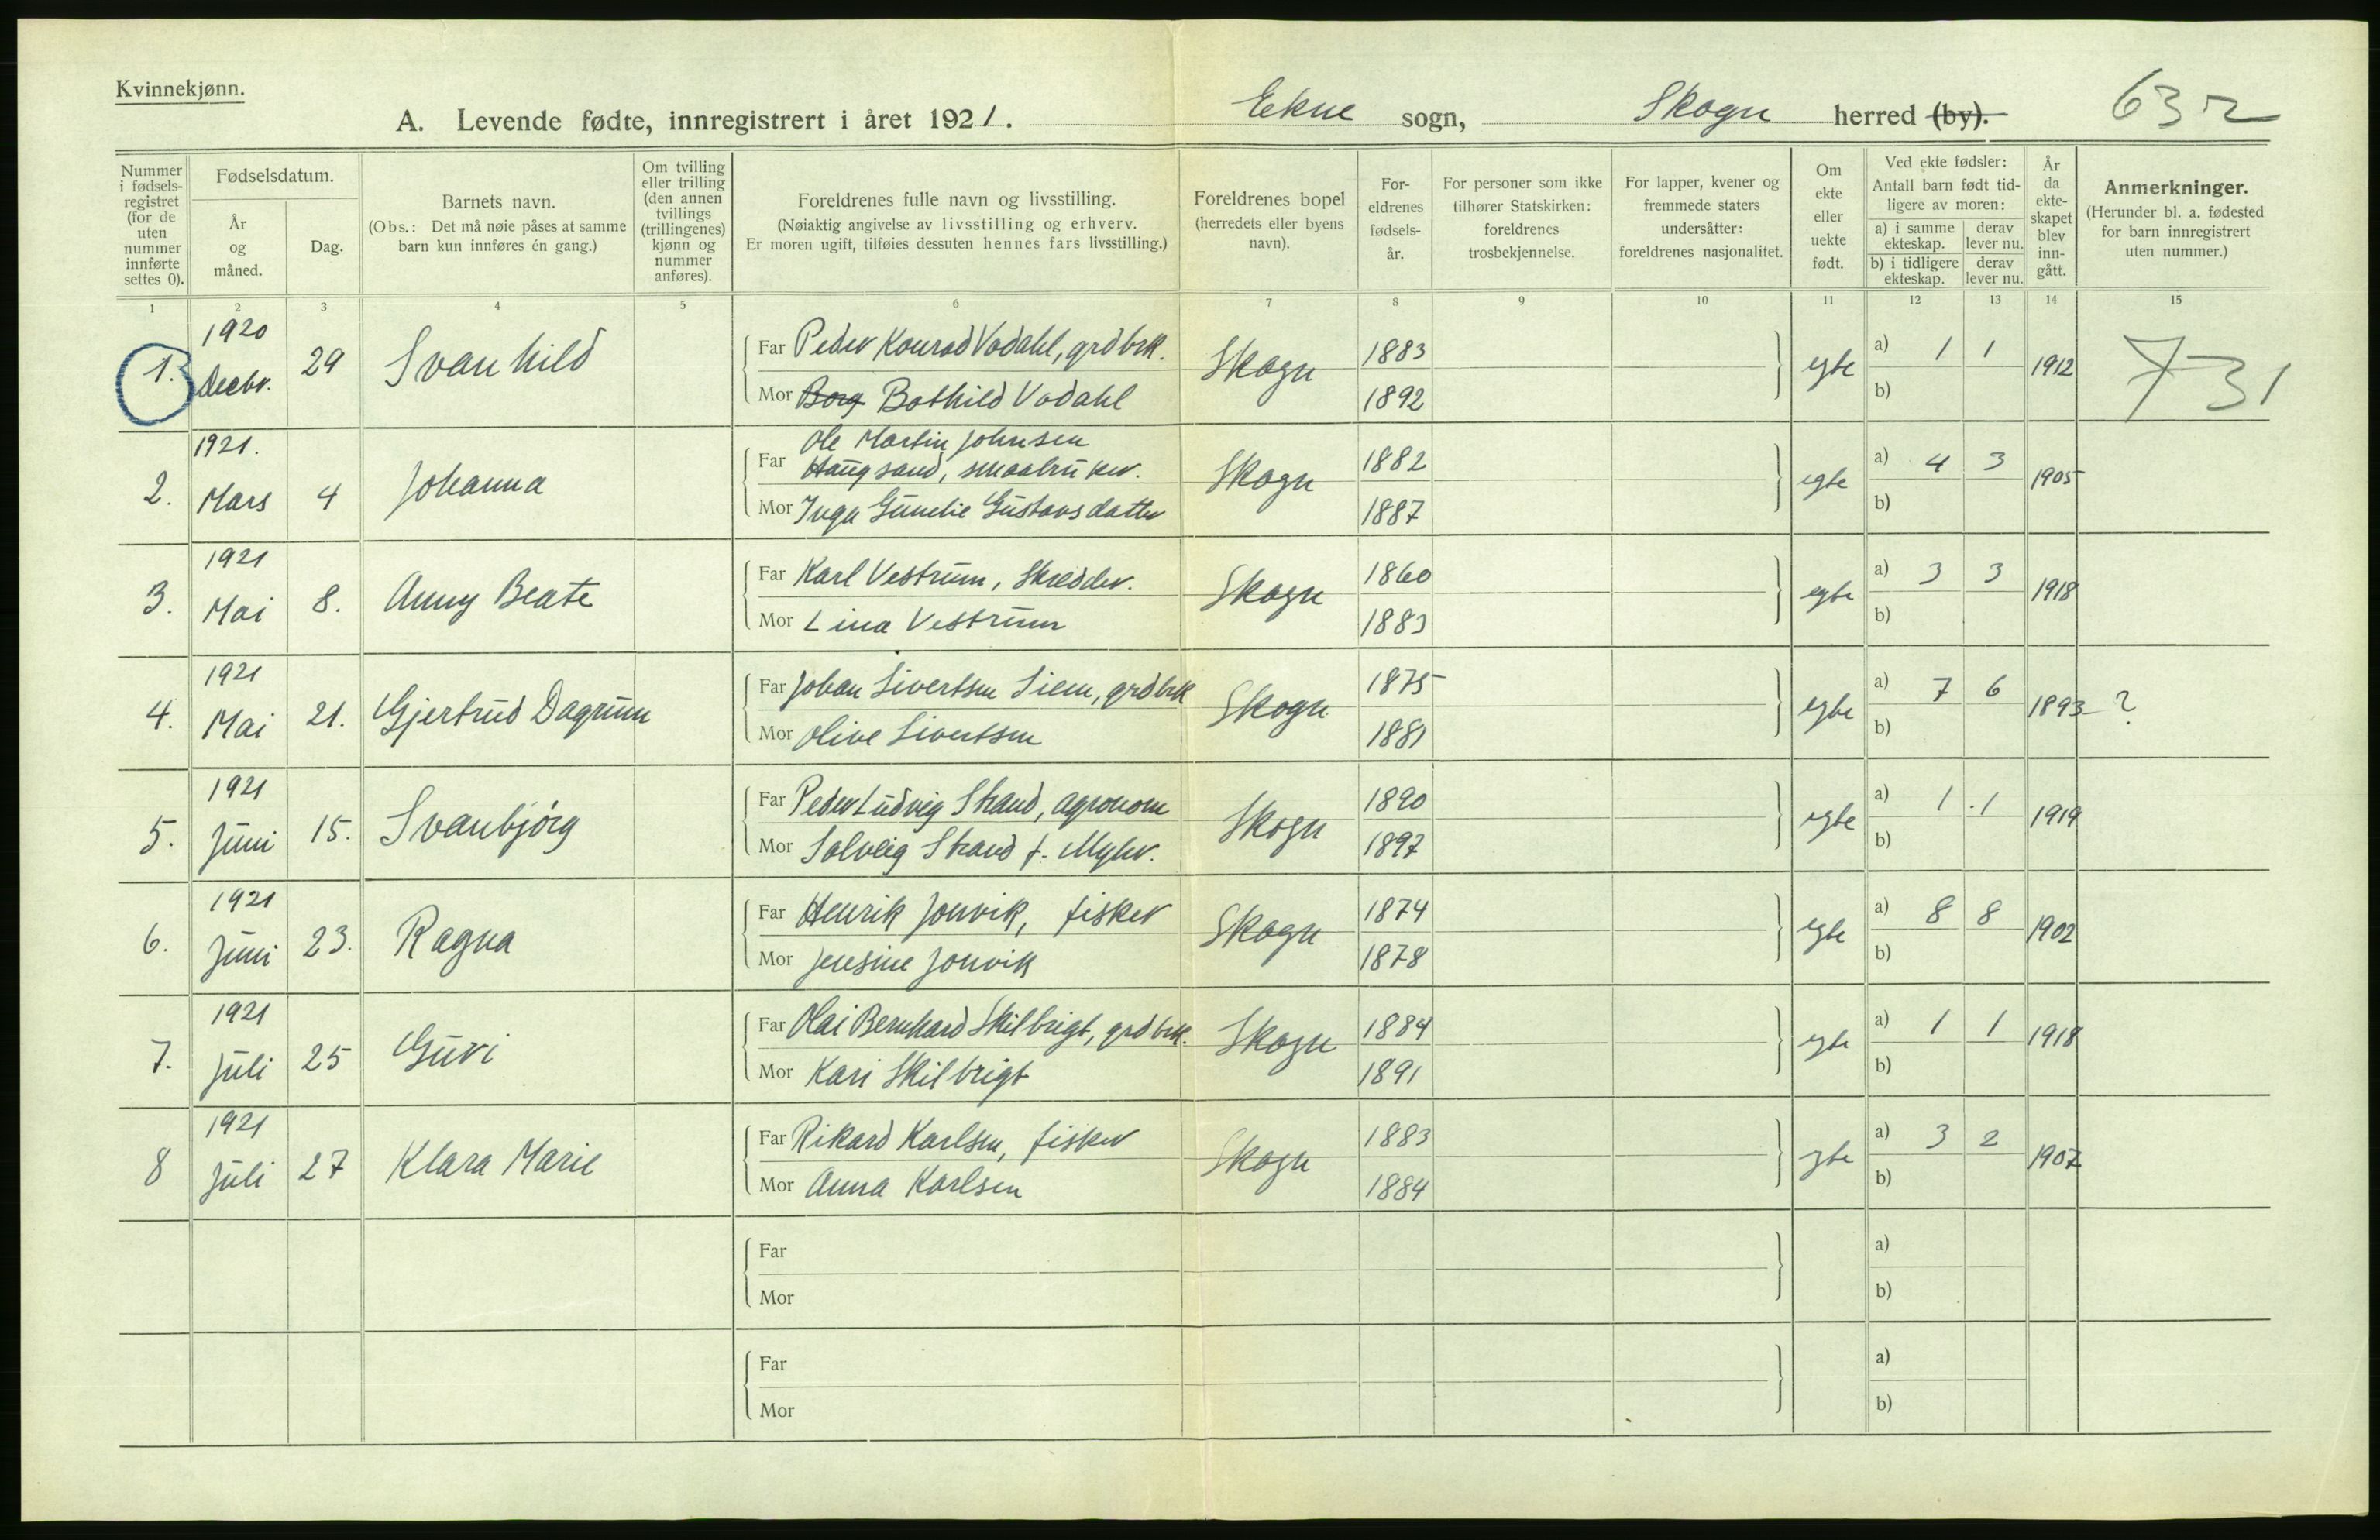 Kvinnekjønn.
A. Levende fødte, innregistrert i året 1921. Ekne sogn, Skogn herred (by). 632
Nummer i fødsels-registret (for de uten nummer innførte settes 0).
Fødselsdatum.
År og måned.
Dag.
Barnets navn.
(Obs.: Det må nøie påses at samme barn kun innføres én gang.)
Om tvilling eller trilling (den annen tvillings (trillingenes) kjønn og nummer anføres).
Foreldrenes fulle navn og livsstilling.
(Nøiaktig angivelse av livsstilling og erhverv.
Er moren ugift, tilføies dessuten hennes fars livsstilling.)
Foreldrenes bopel
(herredets eller byens navn).
For-eldrenes fødsels-år.
For personer som ikke tilhører Statskirken: foreldrenes trosbekjennelse.
For lapper, kvener og fremmede staters undersåtter: foreldrenes nasjonalitet.
Om ekte eller uekte født.
Ved ekte fødsler:
Antall barn født tid-ligere av moren:
a) i samme ekteskap.
derav lever nu.
b) i tidligere ekteskap.
derav lever nu.
År da ekte-skapet blev inn-gått.
Anmerkninger.
(Herunder bl. a. fødested for barn innregistrert uten nummer.)
1 2 3 4 5 6 7 8 9 10 11 12 13 14 15
1. 1920 Decbr. 29 Svanhild
Far Peder Konrad Vodahl, grdbrk. Skogn 1883 egte a) 1 1 1912 731
Mor Borg Bothild Vodahl 1892 b)
2. 1921. Mars 4 Johanna
Far Ole Martin Johnsen
Haugsand, smaabruker. Skogn 1882 egte a) 4 3 1905
Mor Inga Gunelie Gustavsdatter 1887 b)
3. 1921 Mai 8. Anny Beate
Far Karl Vestrum, Skrædder. Skogn 1860 egte a) 3 3 1918
Mor Lina Vestrum 1883 b)
4. 1921 Mai 21. Gjertrud Dagrun
Far Johan Sivertsen Siem, grdbrk Skogn 1875 egte a) 7 6 1893 ?
Mor Olive Sivertsen 1881 b)
5. 1921 Juni 15. Svanbjörg
Far Peder Ludvig Strand, agronom Skogn 1890 egte a) 1 1 1919
Mor Solveig Strand f. Myhr. 1897 b)
6. 1921 Juni 23. Ragna
Far Henrik Jonvik, fisker Skogn 1874 egte a) 8 8 1902
Mor Jensine Jonvik 1878 b)
7. 1921 Juli 25 Guri
Far Olai Bernhard Skilbrigt, grdbrk. Skogn 1884 egte a) 1 1 1918
Mor Kari Skilbrigt 1891 b)
8 1921 Juli 27 Klara Marie
Far Rikard Karlsen, fisker Skogn 1883 egte a) 3 2 1907
Mor Anna Karlsen 1884 b)
Far a)
Mor b)
Far a)
Mor b)